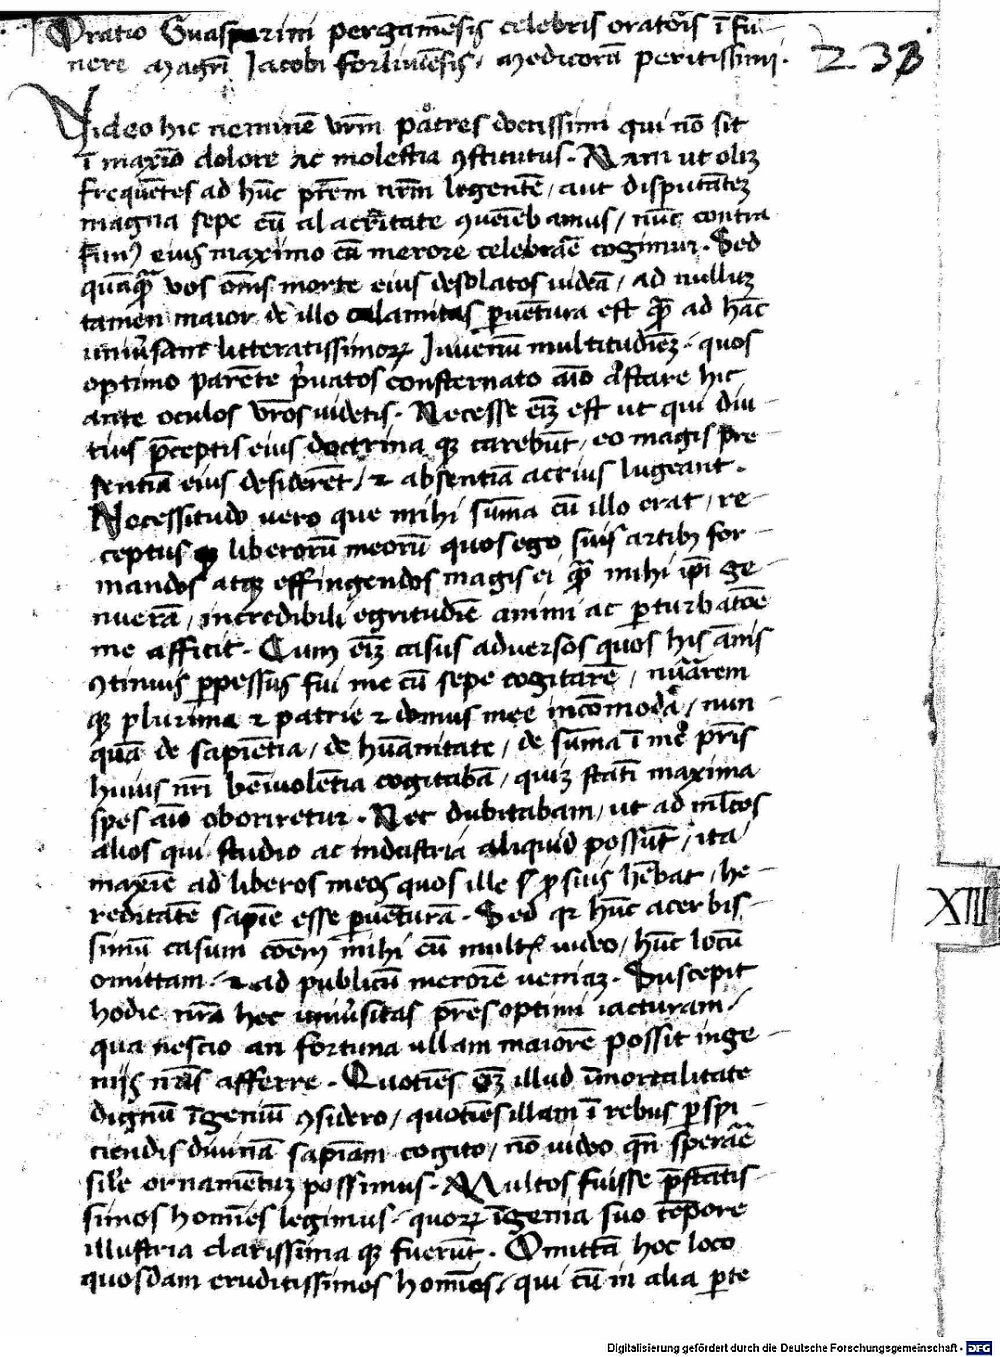 Oratio Guasparini pergamēsis celebris oratoris ī fu-
nere Magri Jacobi forliuiēsis, medicorū peritissimi.
233
Uideo hic neminē vrm̄ patres doctissimi qui nō sit
ī maxīo dolore ac molestia ꝯstitutus. Nam ut olim
frequētes ad hūc prēm nrm̄ legentē, aut disputātem
magna sepe cū alacritate ꝯueniebamus, nūc contra
funus eius maximo cū merore celebrare cogimur. Sed
quāquam vos omīs morte eius desolatos uideā, ad nullum
tamen maior de illo calamitas ꝑuētura est quam ad hāc
uniuersam litteratissimoꝝ Juuenū multitudinem. quos
optimo parēte priuatos consternato aīo astare hic
ante oculos vros uidetis. Necesse eīm est ut qui diu-
tius p̄ceptis eius doctrina qꝫ carebūt, eo magis pre-
sentiā eius desiderēt, et absentiā acrius lugeant.
Necessitudo uero que mihi sūma cū illo erat, re-
ceptus liberorū meorū quos ego suis artibꝫ for-
mandos atqꝫ effingendos magis ei quam mihi ipi ge-
nuerā, incredibili egritudīe animi ac ꝑturbatōe
me afficit. Cum eīm casus aduersos quos his annis
ꝯtinuis ꝑpessus fui me cū sepe cogitarē, nūarem
qꝫ plurima et patrie et domus mee incōmoda, nun
quā de sapiētia, de hūanitate, de sūma ī me pris
huius nri beniuolētia cogitabā, quin statī maxima
spes aīo oboriretur. Nec dubitabam, ut ad mltos
alios qui studio ac industria aliquid possūt, ita
maxīe ad liberos meos quos ille ꝑ suis hēbat, he-
reditatē sapīe esse ꝑuēturā. Sed qꝛ hūc acerbis-
simū casum coēm mihi cū multis uideo, hūc locū
omittam. et ad publicū merorē ueniam. Suscepit
hodie nrā hec uniuersitas prēs optimi iacturam,
qua nescio an fortuna ullam maiorē possit inge-
niis nris afferre. Quotiēs eīm illud īmortalitate
dignū īgeniū ꝯsidero, quotiēs illam ī rebus ꝑspi-
ciendis diuinā sapīam cogito, nō uideo qn̄ sperare
sile ornamētum possimus. Multos fuisse p̄stātis-
simos homīes legimus, quoꝝ īgenia suo tēpore
illustria clarissima qꝫ fuerūt. Omittā hoc loco
quosdam eruditissimos homīes, qui cū in alia ꝑte
XIII
Digitalisierung gefördert durch die Deutsche Forschungsgemeinschaft - DFG